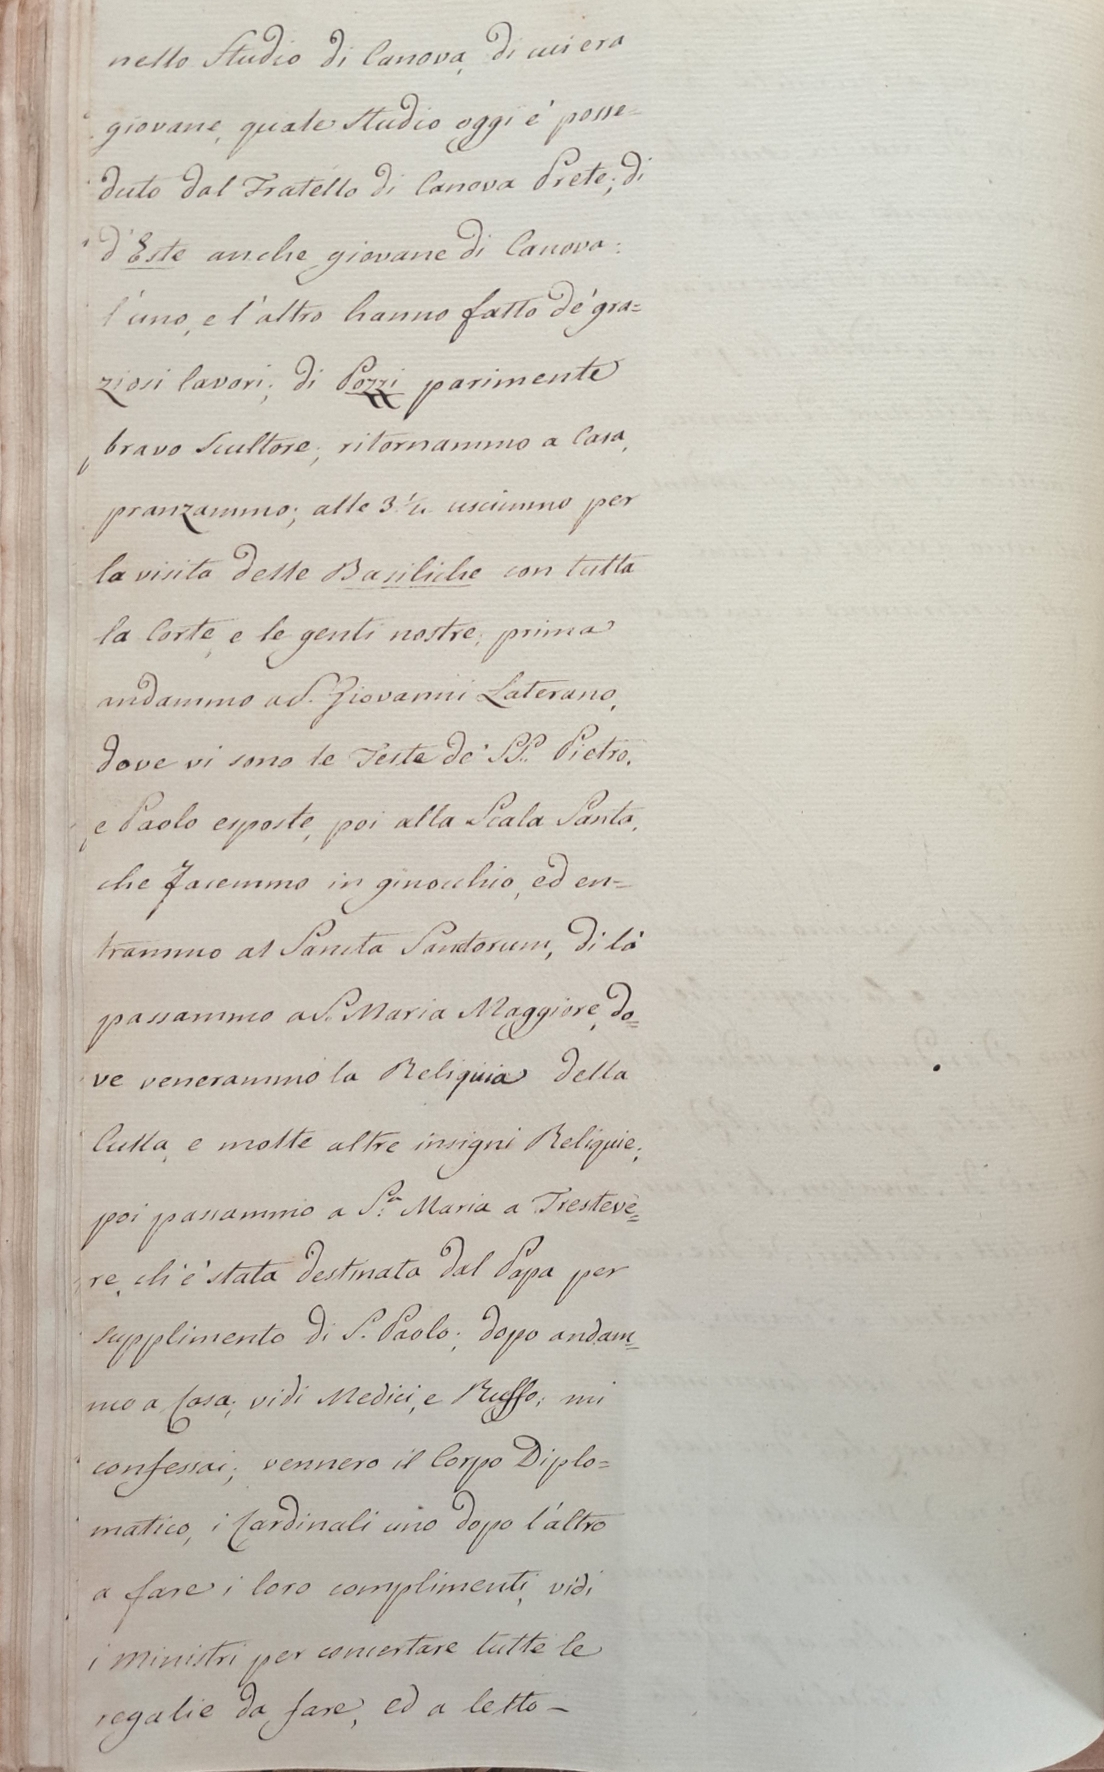 nello Studio di Canova, di cui era
giovane, quale Studio oggi é posse=
duto dal Fratello di Canova Prete; di
d'Este anche giovane di Canova:
l'uno, e l'altro hanno fatto de' gra=
ziosi lavori; di Pozzi parimente
bravo Scultore; ritornammo a Casa,
pranzammo; alle 3 ½ uscimmo per
la visita delle Basiliche con tutta
la Corte, e le genti nostre; prima
andammo a S. Giovanni Laterano,
dove vi sono le Teste de' SS. Pietro,
e Paolo esposte, poi alla Scala Santa,
che facemmo in ginocchio, ed en=
trammo al Sancta Sanctorum, di là
passammo a S. Maria Maggiore, do=
ve venerammo la Reliquia della
Culla, e molte altre insigni Reliquie;
poi passammo a S.ta Maria a Trasteve=
re, ch'é stata destinata dal Papa per
supplimento di S. Paolo; dopo andam=
mo a Casa; vidi Medici, e Ruffo; mi
confessai; vennero il Corpo Diplo=
matico, i Cardinali uno dopo l'altro
a fare i loro complimenti, vidi
i Ministri per concertare tutte le
regalie da fare, ed a letto —